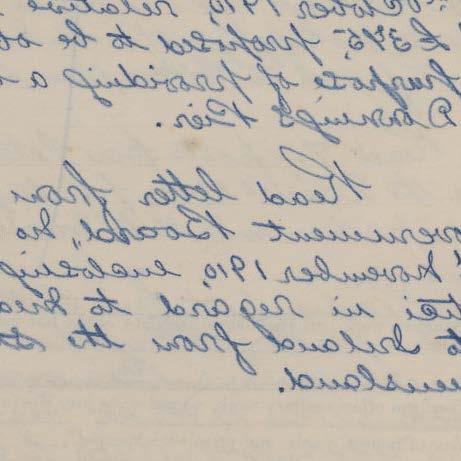 October 1910, relative
£345, proposed to be
purpose of providing a
Downings Pier.
Read letter from
vernment Board, No.
November 1910, enclosing
in regard to
to Ireland from the
eensland.